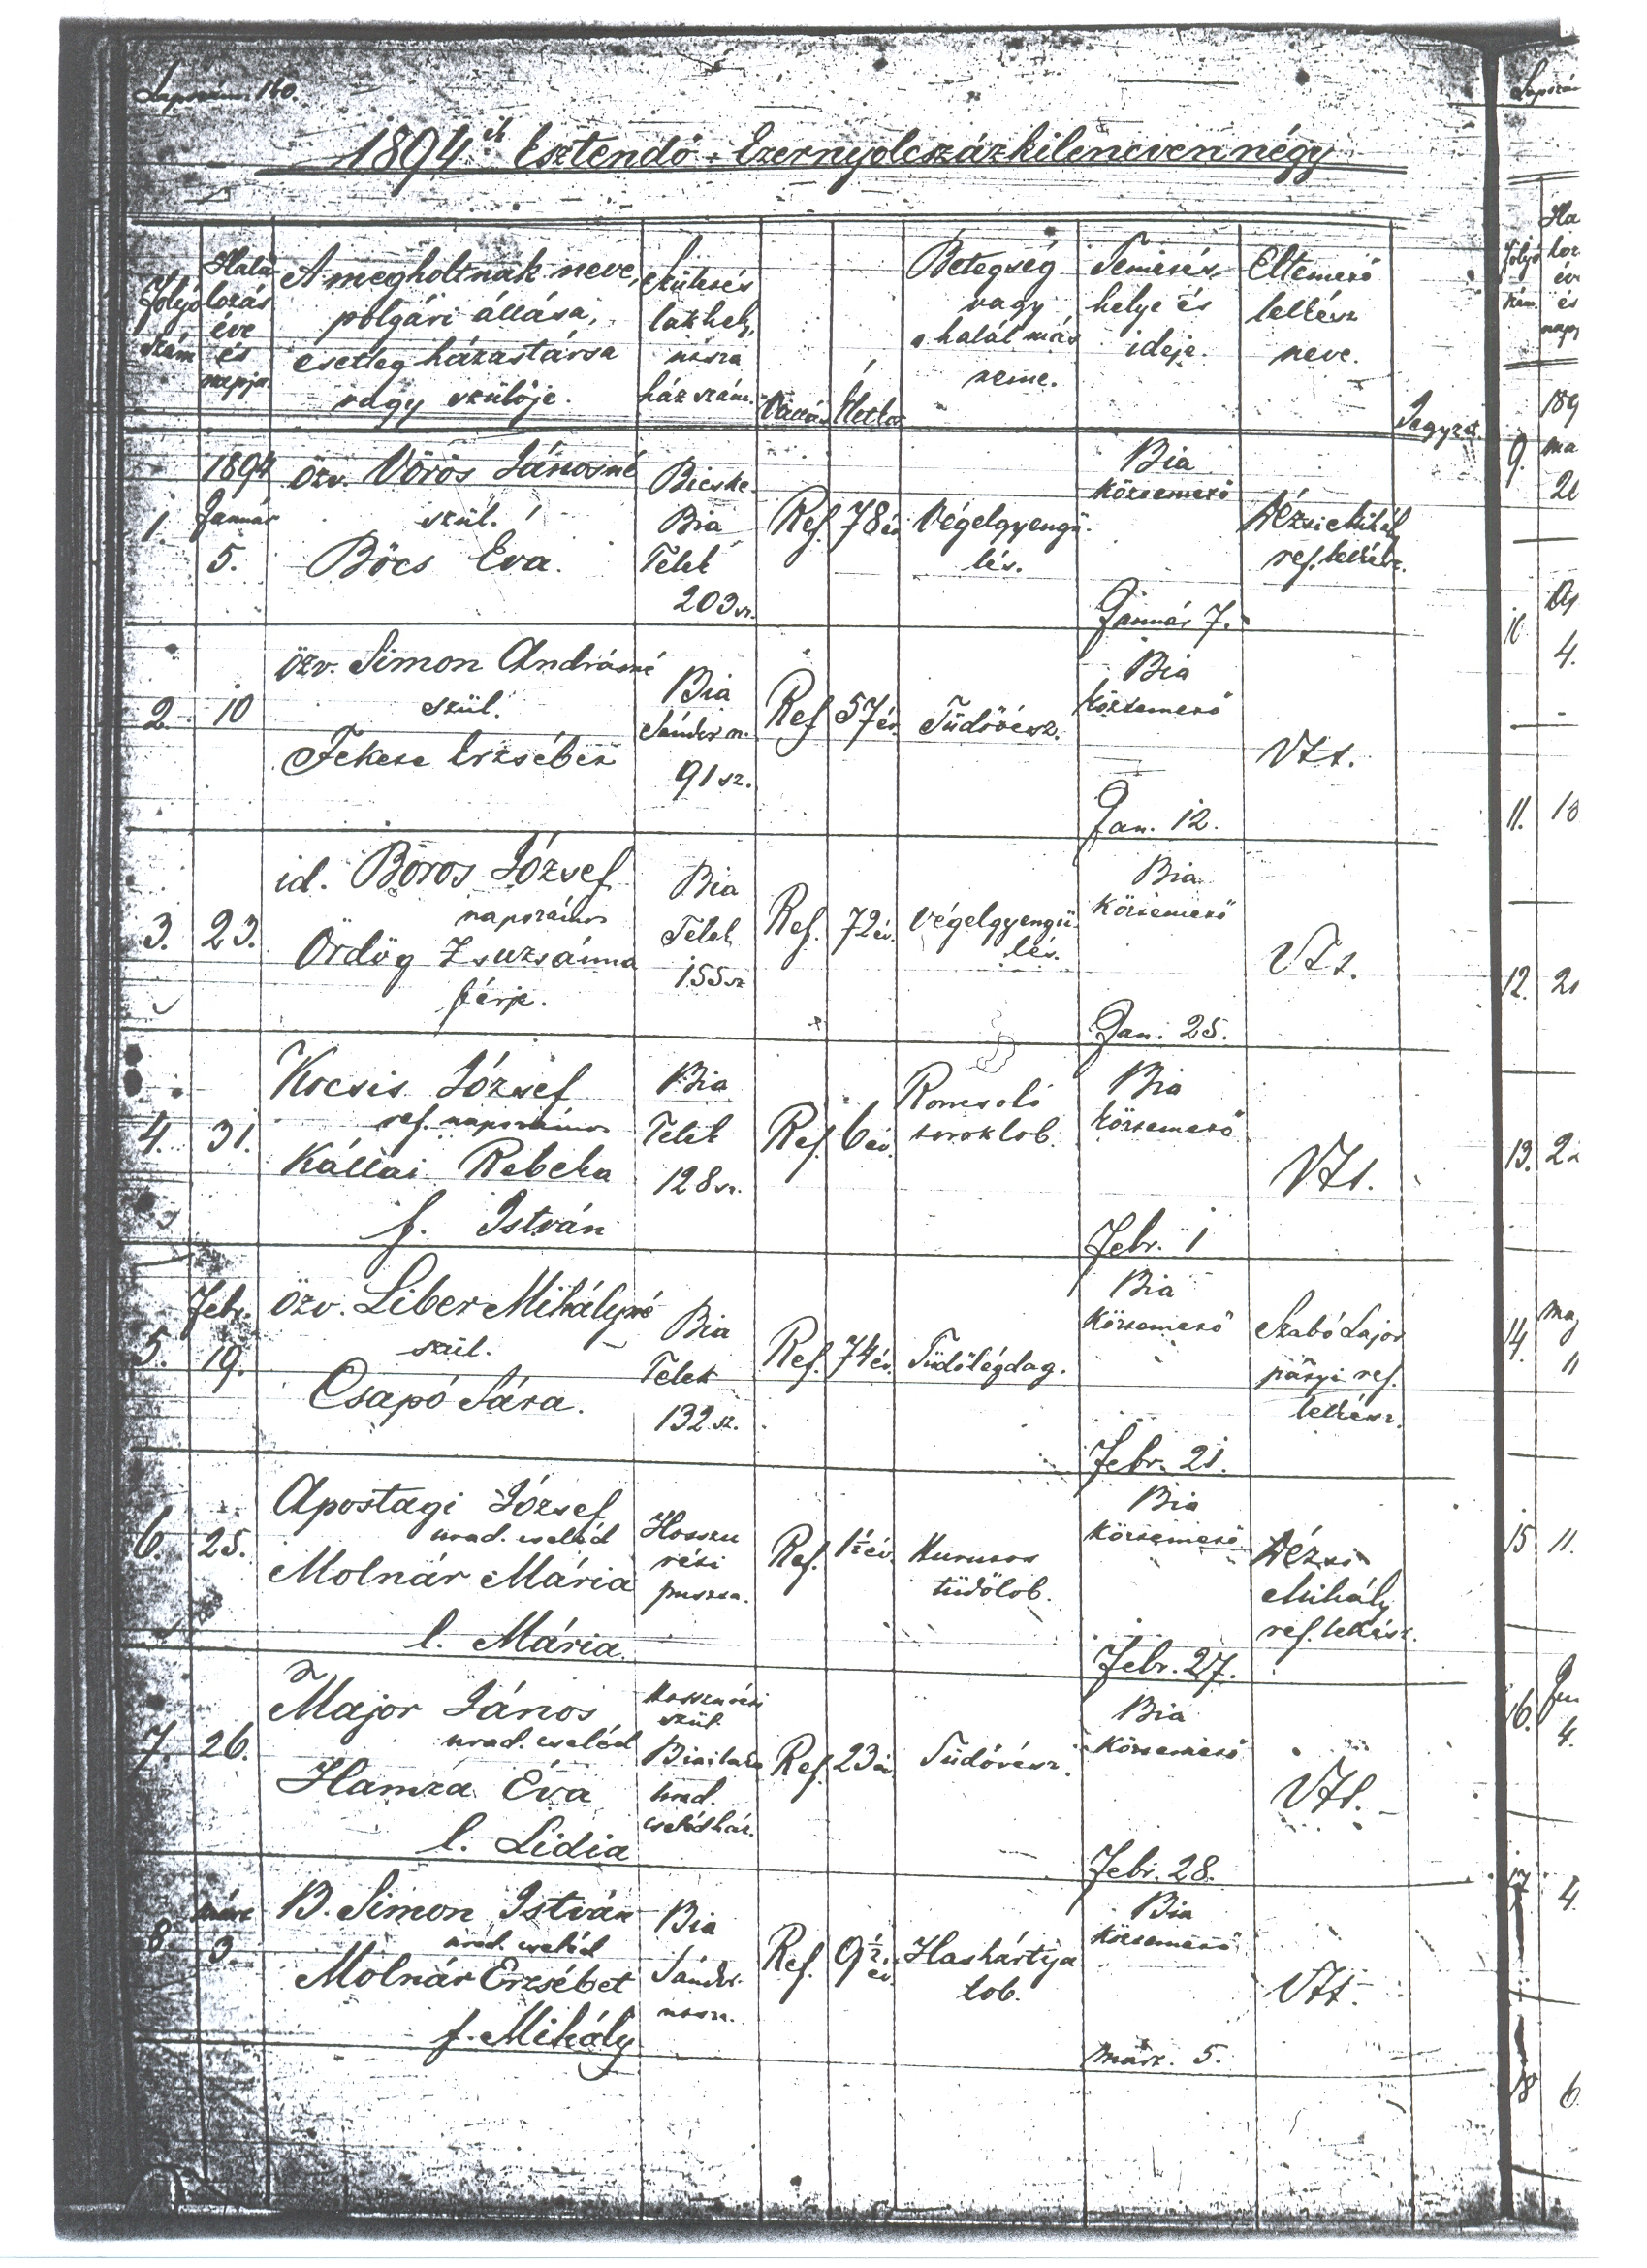 Lapszám 160.
1894 ik Esztendő - Ezernyolczázkilenczvennégy
Folyó szám
Halálozás éve és napja
A megholtnak neve, polgári állása, esetleg házastársa vagy szülője.
Születés lakhely, utcza ház szám.
Vallás
Életkor
Betegség vagy a halál más neme.
Temetés helye és ideje.
Eltemető lelkész neve.
Jegyzet
1.
1894
Január
5.
Özv. Vörös Jánosné
szül.
Böcs Éva.
Bicske
Bia
Telek
203 sz.
Ref.
78 év
Végelgyengü-
lés.
Bia
köztemető
Január 7.
Mihály
ref. lelkész.
2.
10
özv. Simon Andrásné
szül.
Fekete Erzsébet
Bia
Sándor u.
91 sz.
Ref
57 év
Tüdővész.
Bia
köztemető
Jan. 12.
3.
23.
id. Boros József
napszámos
Ördög Zsuzsánna
férje.
Bia
Telek
155 sz
Ref.
72 év.
Végelgyengü-
lés.
Bia
köztemető
Jan. 25.
4.
31.
Kocsis József
ref. napszámos
Kállai Rebeka
f. István
Bia
Telek
128 sz.
Ref.
6 év
Roncsoló
toroklob.
Bia
köztemető
Febr. 1
5.
Febr.
19.
Özv. Liber Mihályné
szül.
Csapó Sára.
Bia
Telek
132 sz.
Ref.
74 év
Tüdőlégdag.
Bia
köztemető
Febr. 21.
Szabó Lajos
ref.
lelkész.
6.
25.
Apostagi József
urad. cseléd
Molnár Mária
l. Mária
Hosszu
réti
puszta.
Ref.
1½ év
Hurutos
tüdőlob.
Bia
köztemető
Febr. 27.
Mihály
ref. lelkész.
7.
26.
Major János
urad. cseléd
Hamza Éva
l. Lidia
Hosszuréti
szül.
urad.
cselédház.
Ref.
23 év
Tüdővész.
Bia
köztemető
Febr. 28.
8.
3.
B. Simon István
urad. cseléd
Molnár Erzsébet
f. Mihály
Bia
Sándor
utcza.
Ref.
9½ év
Hashártya
lob.
Bia
köztemető
márcz. 5.
9.
11.
12.
13.
14.
15
16.